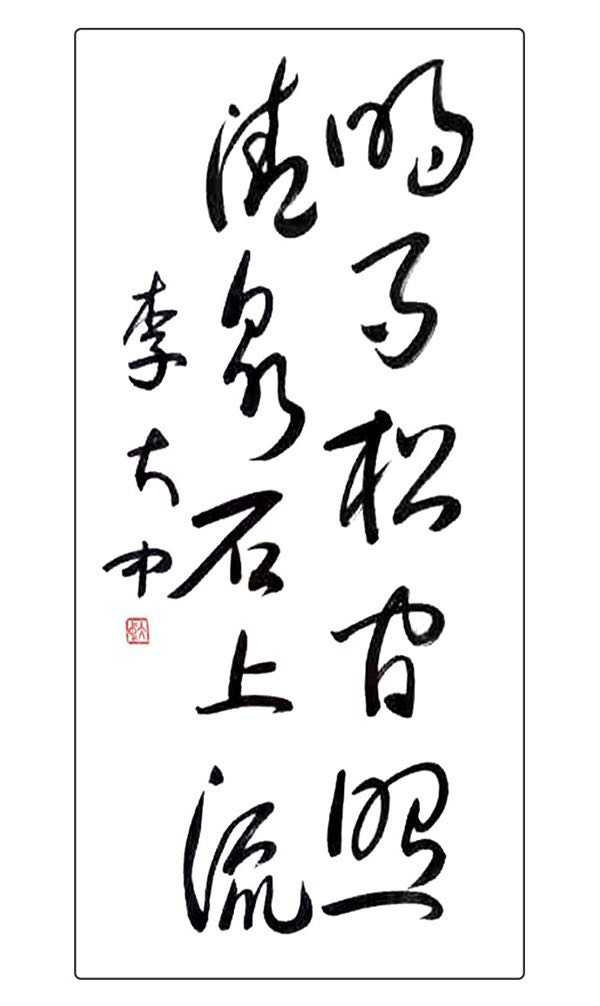 明月松间照
清泉石上流
李大中